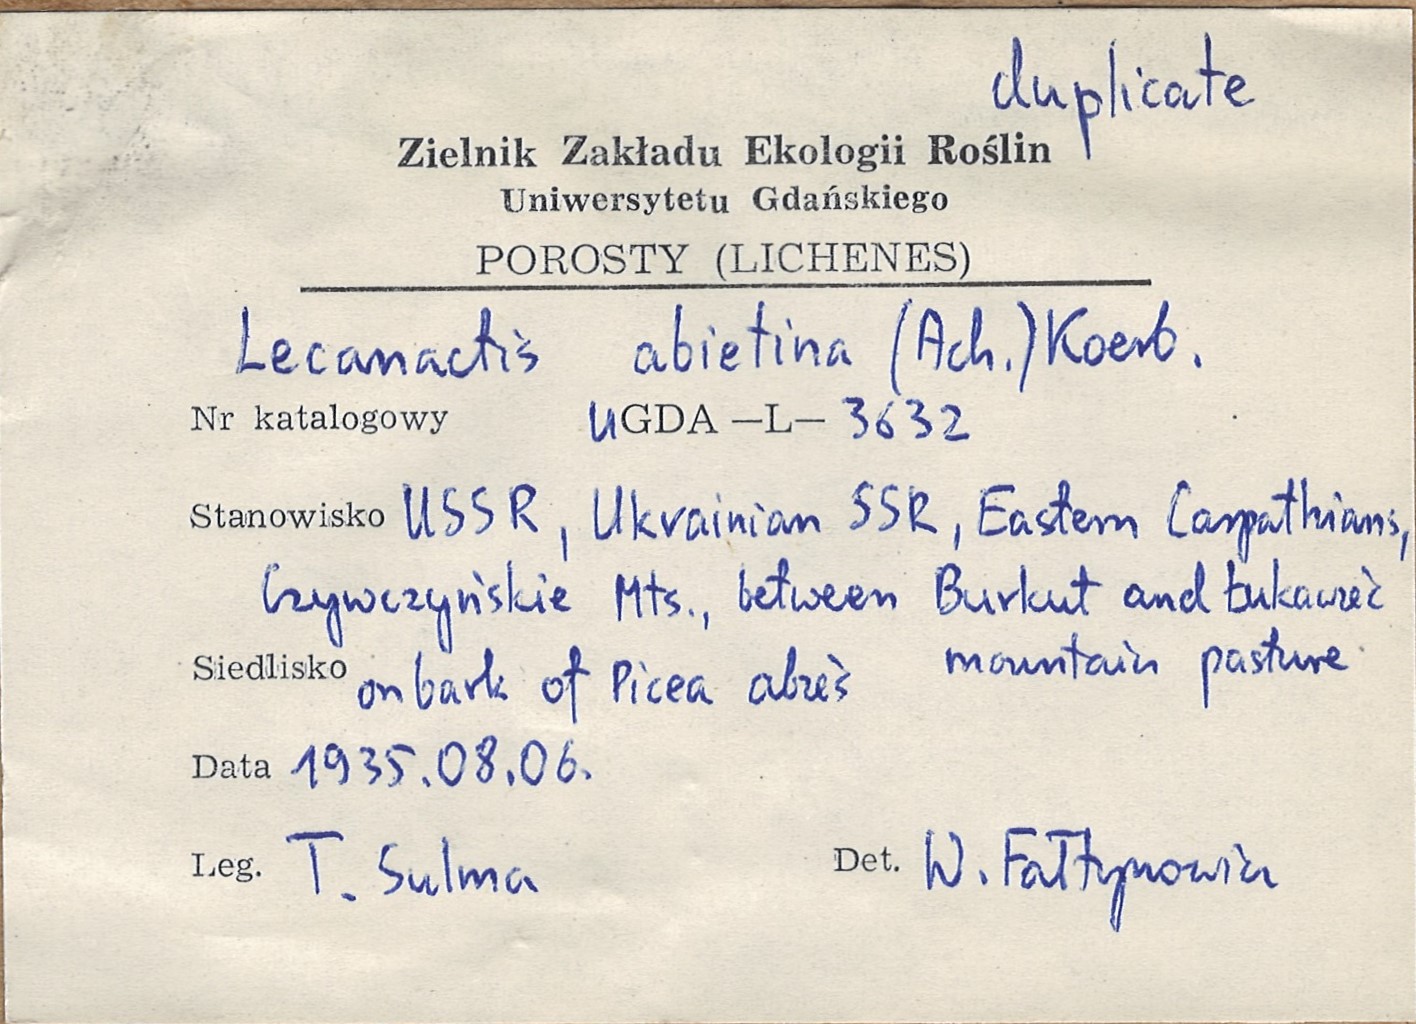 duplicate
Zielnik Zakładu Ekologii Roślin
Uniwersytetu Gdańskiego
POROSTY (LICHENES)
Lecanactis abietina (Ach.) Koerb.
Nr katalogowy UGDA —L— 3632
Stanowisko USSR, Ukrainian SSR, Eastern Carpathians,
Czywczyńskie Mts., between Burkut and Łukawiec
mountain pasture
Siedlisko on bark of Picea abies
Data 1935.08.06.
Leg. T. Sulma Det. W. Fałtynowicz